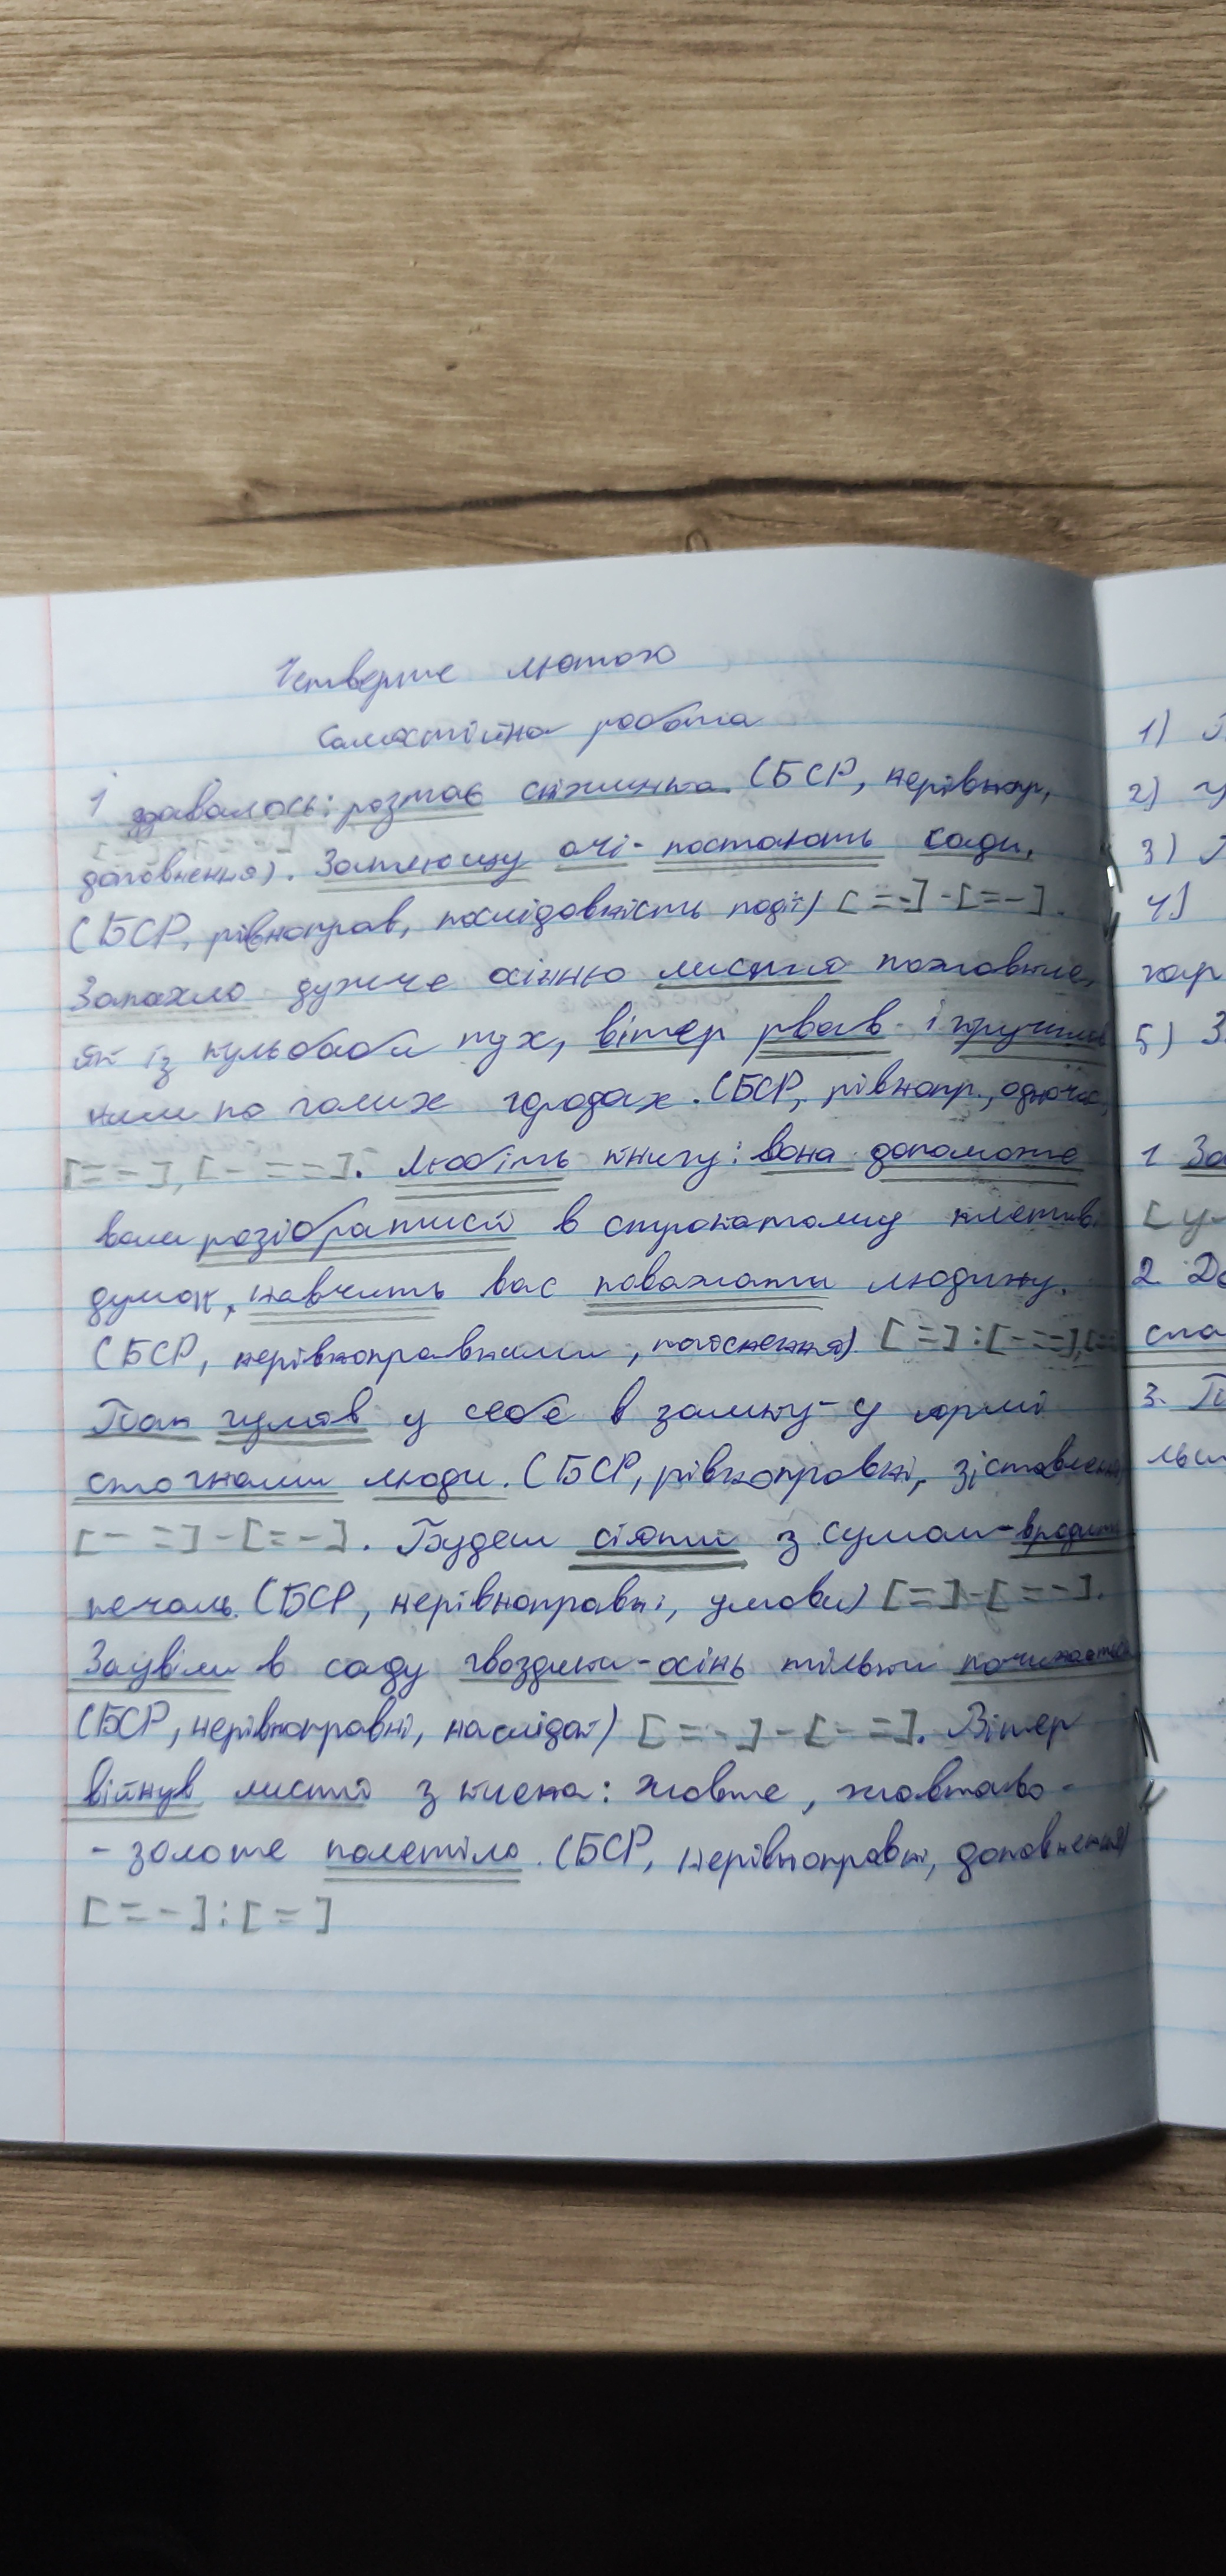 Четверте лютого
Самостійна робота
І здавалось: розтає сніжинка. (БСР, нерівнопр,
доповнення). Заплющу очі - постають сади.
(БСР, рівноправ, послідовність подій) [= -] - [= -].
Запахло дужче осінню листя пожовкле,
як із кульбаби пух, вітер рвав і кручував
ним по голих городах. (БСР, рівнопр., одночас,
[= -], [- = =]. Любіть книгу: вона допоможе
вам розібратися в строкатому плетиві
думок, навчить вас поважати людину.
(БСР, нерівноправними, пояснення) [=] : [- = =], [=
Пан гуляв у себе в замку - у ярмі
стогнали люди. (БСР, рівноправні, зіставлення
[- =] - [= -]. Будеш сіяти з сумом - вродить
печаль. (БСР, нерівноправні, умови) [=] - [= -].
Зацвіли в саду гвоздики - осінь тільки починається
(БСР, нерівноправні, наслідок) [= -] - [- =]. Вітер
війнув листя з клена: жовте, жовтаво-
- золоте полетіло. (БСР, нерівноправні, доповнення)
[= -] : [=]
1)
2)
3)
4)
5) З
1 За
2. До
3. П